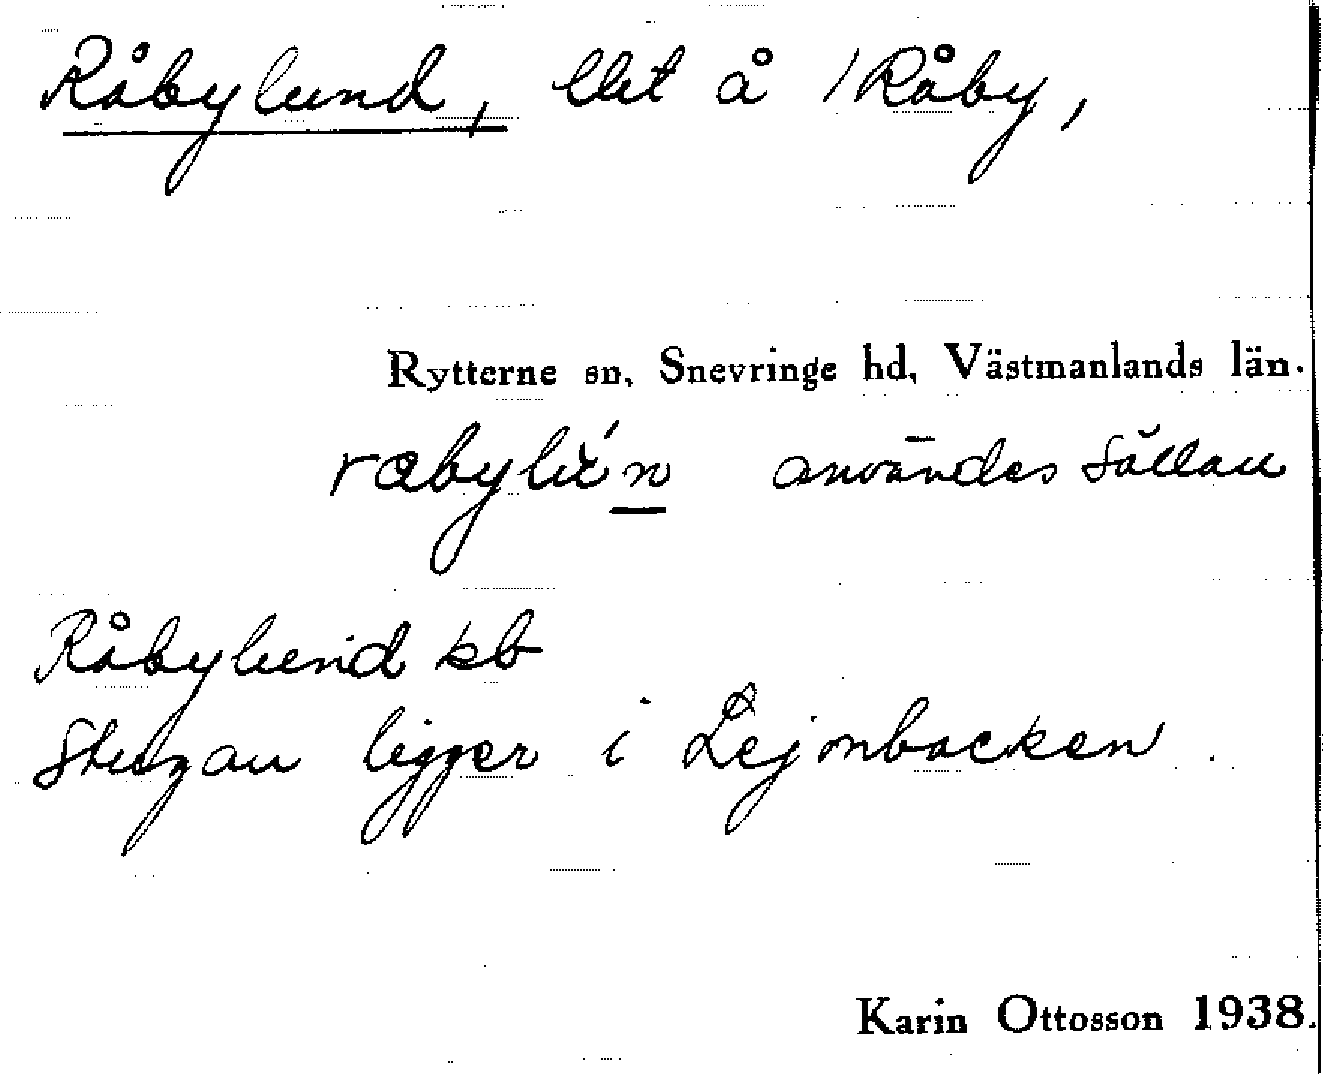 Råbylund, lht å 1 Råby,
Rytterne sn, Snevringe hd, Västmanlands län.
användes sällan
Råbylund kb
Stugan ligger i Lejonbacken.
Karin Ottosson 1938.